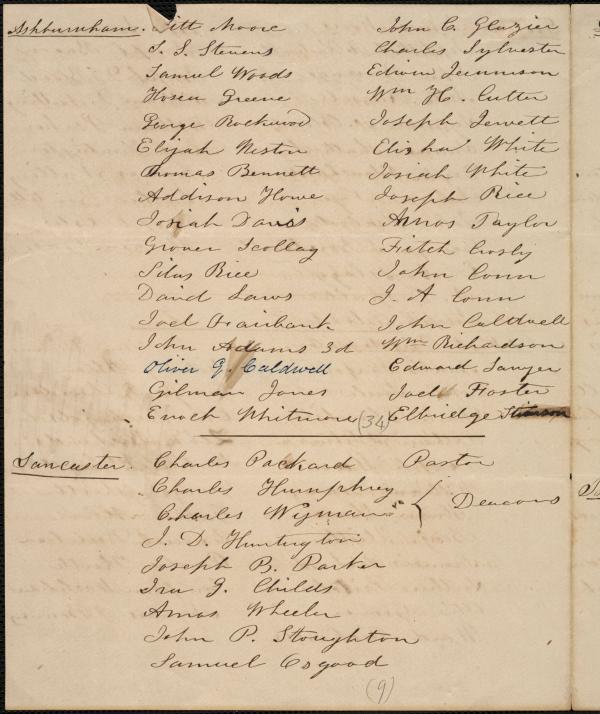 Ashburnham. Pitt Moore
S. S. Stevens
Samuel Woods
Hosea Greene
George Rockwood
Elijah Weston
Thomas Bennett
Addison Howe
Josiah Davis
Grover Scollay
Silas Rice
David Laws
Joel Fairbank
John Adams 3d
Oliver G. Caldwell
Gilman Jones
Enoch Whitmore (34)
John C. Glazier
Charles Sylvester
Edwin Jennison
Wm H. Cutter
Joseph Jewett
Elisha White
Josiah White
Joseph Rice
Amos Taylor
Fitch Crosby
John Conn
J. A Conn
John Caldwell
Wm Richardson
Edward Sawyer
Joel Foster
Elbridge Stimson
Lancaster. Charles Packard Pastor
Charles Humphrey
Charles Wyman } Deacons
J. D. Huntington
Joseph B. Parker
Ira G. Childs
Amos Wheeler
John P. Stoughton
Samuel Osgood
(9)